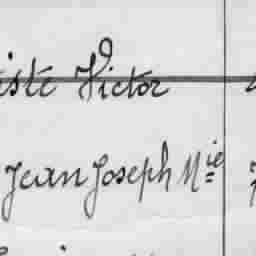 iste Victor
Jean Joseph Mie